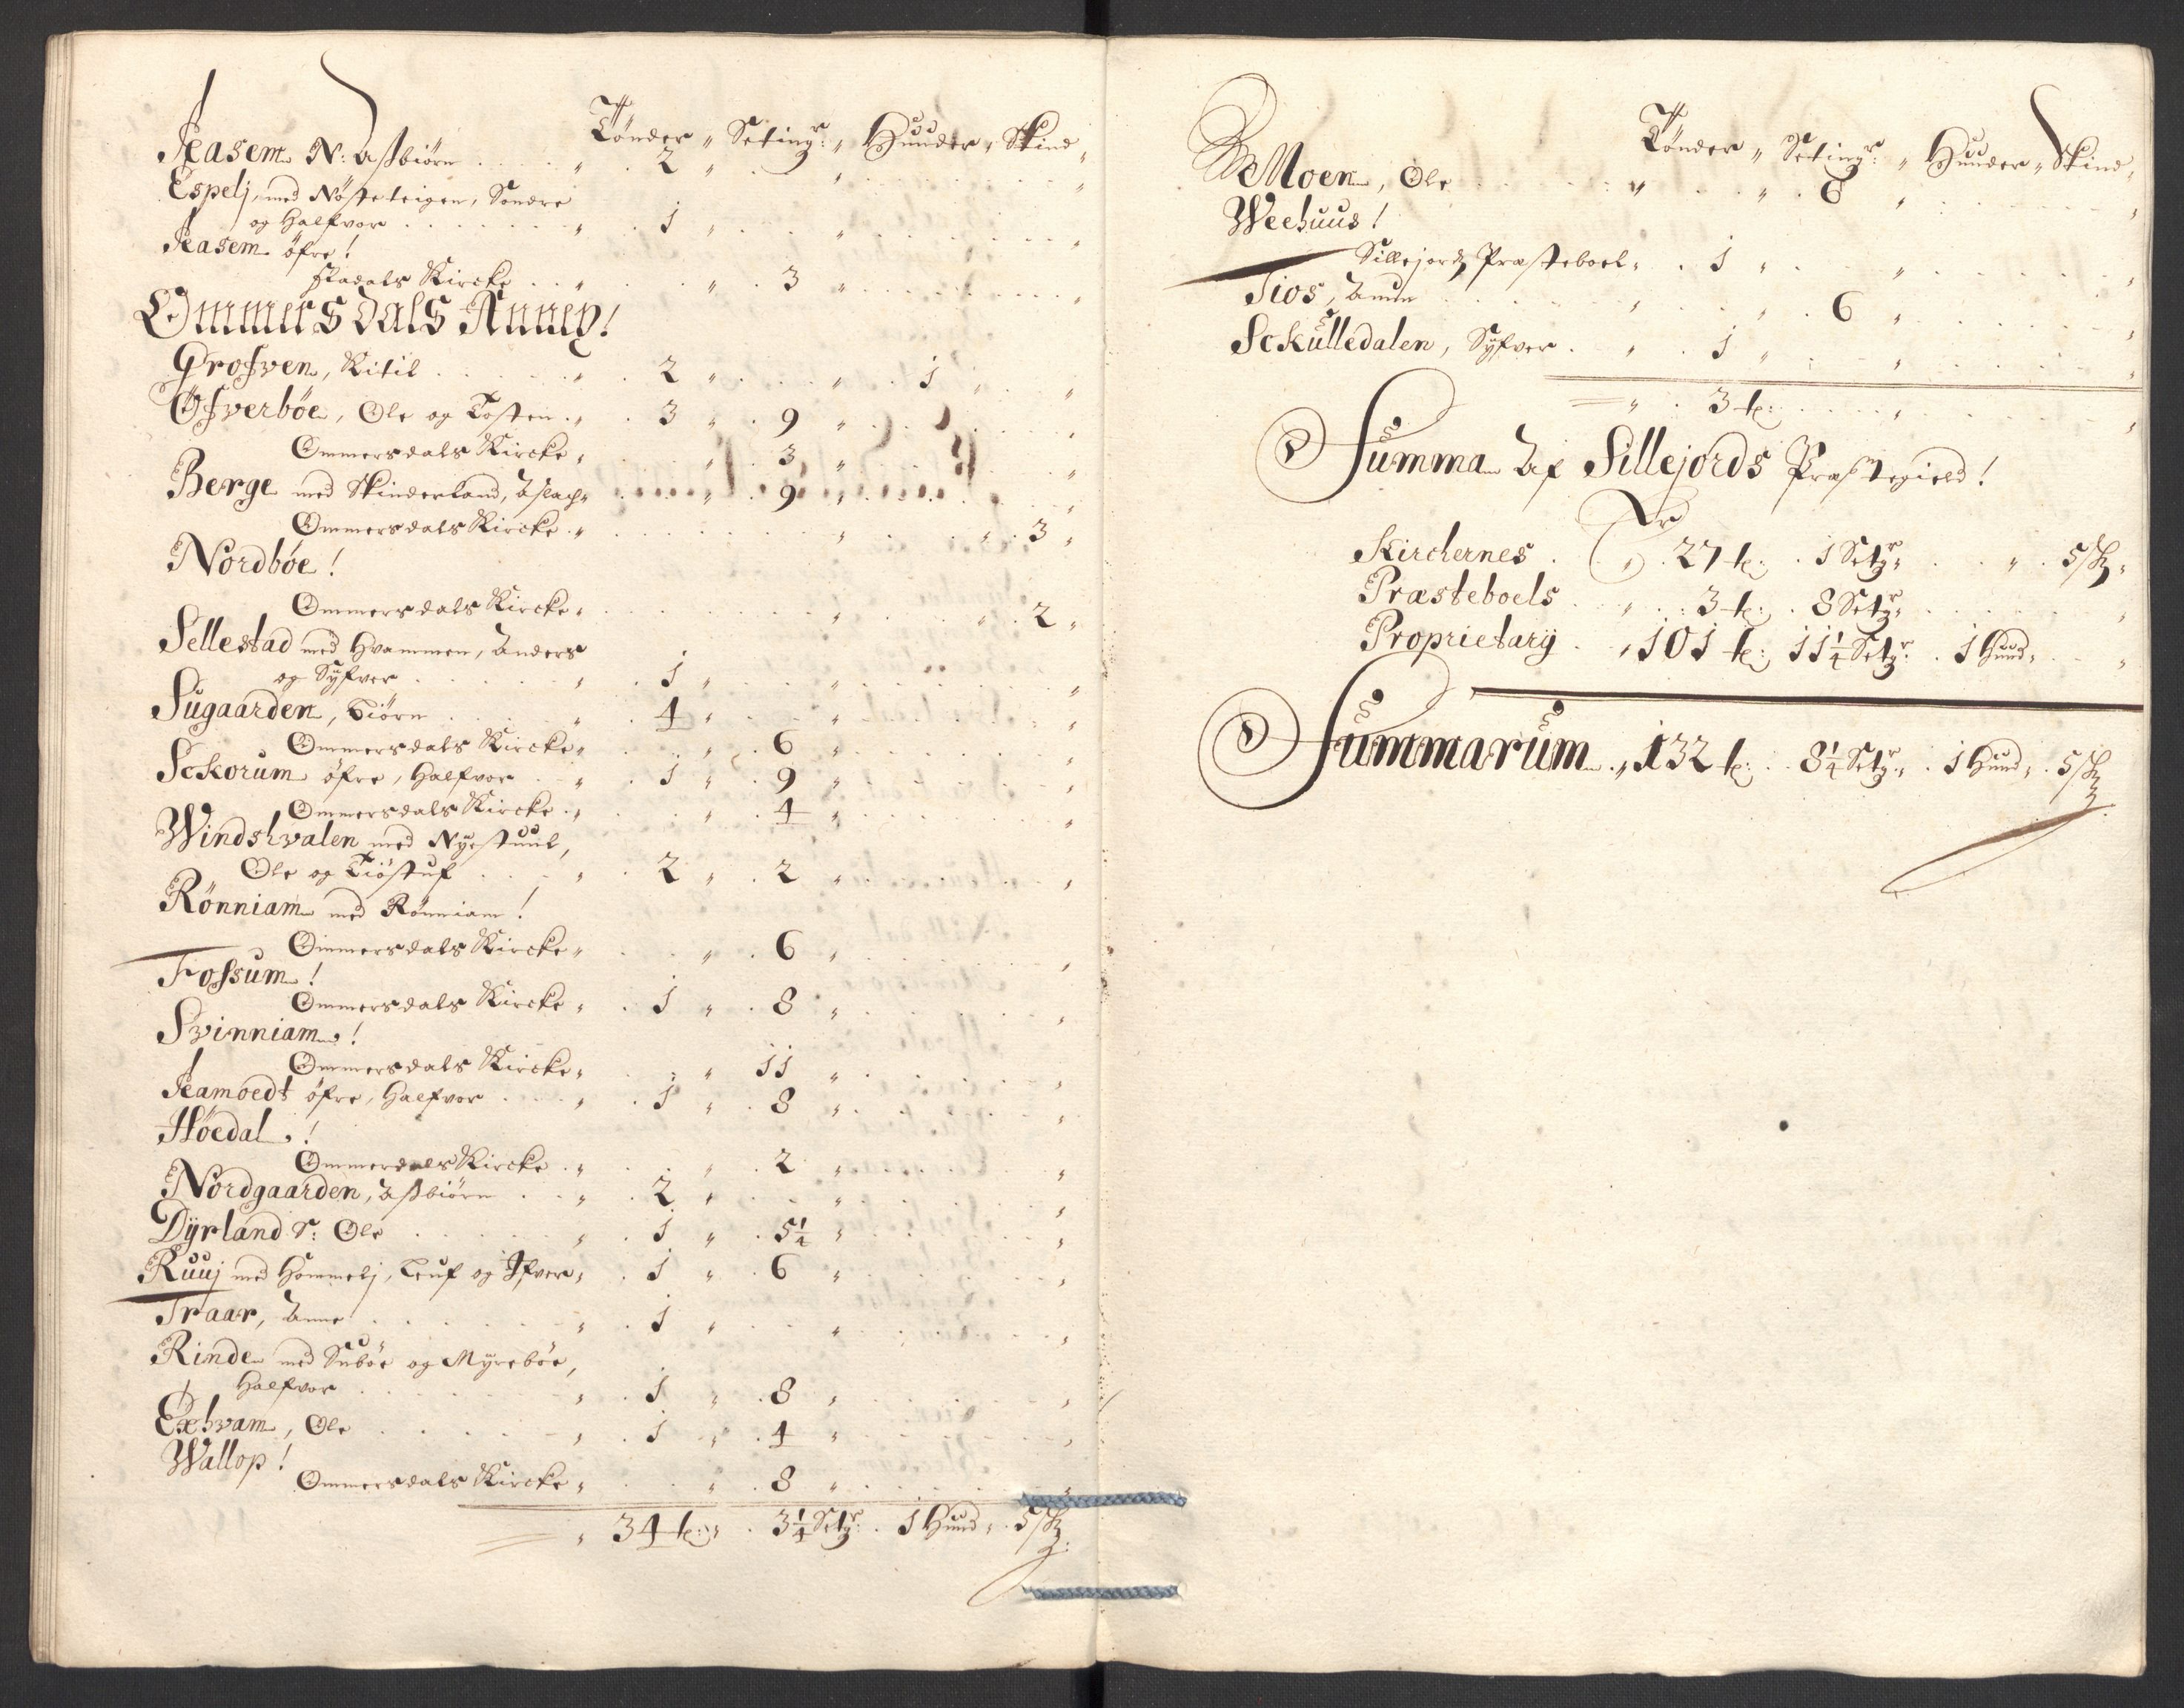 Tönder „ Setingr: „ Huuder „ Skind „
Aasem N: Aßbiörn . . . . „ . 2 „ . . . „ . . . . „
Espelj, med Nösteteigen, Sondre
og Halfvor . . . . . . „ . 1 „ . . . „ . . . . „
Aasem öfre!
Fladals Kircke . . „ . . „ . 3 „ . . . . „
Ommersdals Anney!
Grofven, Kitil . . . . . „ . 2 „ . . . „ . 1 „ . . „
Öfverböe, Ole og Tosten . „ . 3 „ . 9 „ . . . . „
Ommersdals Kircke „ . . „ . 3 „ . . . . „
Berge med Skinderland, Aslach „ . . „ . 9 „ . . . . „
Ommersdals Kircke . „ . . . . „ . . „ . 3 „
Nordböe!
Ommersdals Kircke „ . . . . „ . . „ . 2 „
Sellestad med Hvammen, Anders
og Syfver . . . . . „ . 1 „ . . . „ . . . . „
Sugaarden, Biörn . . . . „ . 4 „ . . . „ . . . . „
Ommersdals Kircke „ . . „ . 6 „ . . . . „
Sckorum öfre, Halfvor . . „ . 1 „ . 9 „ . . . . „
Ommersdals Kircke . „ . . „ . 4 „ . . . . „
Windshvalen med Nyestuul,
Ole og Tiöstuf . . . . „ . 2 „ . 2 „ . . . . „
Rönniam med Rönniam!
Ommersdals Kircke „ . . „ . 6 „ . . . . „
Fossum!
Ommersdals Kircke „ . 1 „ . 8 „ . . . . „
Svinniam!
Ommersdals Kircke „ . . „ 11 „ . . . . „
Aamoedt öfre, Halfvor . . . „ . 1 „ . 8 „ . . . . „
Höedal!
Ommersdals Kircke . „ . . „ . 2 „ . . . . „
Nordgaarden, Aßbiörn . . „ . 2 „ . . . „ . . . . „
Dÿrland S: Ole . . . . . „ . 1 „ . 5¼ „ . . . . „
Ruuj med Hommelj, Leuf og Ifver „ . 1 „ . 6 „ . . . . „
Traar, Anne . . . . . . „ . 1 „ . . . „ . . . . „
Rinde med Suböe og Myreböe,
Halfvor . . . . . . „ . 1 „ . 8 „ . . . . „
Exhvam, Ole . . . . . „ . 1 „ . 4 „ . . . . „
Wallop!
Ommersdals Kircke „ . . „ . 8 „ . . . . „
„ 34 t: „ . 3¼ Setgr: . 1 Huud „ . 5 sk:
Tönder „ Setingr: „ Huuder „ Skind „
Moen, Ole . . . . . „ . . „ . 8 „ . . . . „
Weehuus!
Sillejords Præsteboel „ . 1 „ . . . „ . . . . „
Tios, Amun . . . . . „ . . „ . 6 „ . . . . „
Sckulledalen, Syfver . „ . 1 „ . . . „ . . . . „
„ . 3 t: . . . „ . . . . „
Summa Af Sillejords Præstegield!
Kirckernes . „ . 27 t: . 1 Setgr „ . . „ . 5 sk „
Præsteboels . „ . 3 t: . 8 Setgr „ . . . . „
Proprietarÿ . „ 101 t: 11¼ Setgr: . 1 Huud „ . . „
Summarum . „ 132 t: . 8¼ Setgr „ . 1 Huud „ . 5 sk